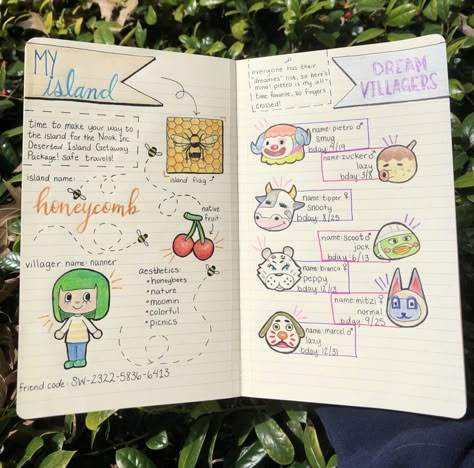 MY
island
time to make your way to
the island for the Nook Inc.
Deserted Island Getaway
Package! safe travels!
island flag
island name:
honeycomb
native
fruit
villager name: nunner
aesthetics:
•honeybees
•nature
•moomin
•colorful
•picnics
friend code: SW-2322-5836-6413
everyone has their
"dreamies" list, so here's
mine! pietro is my all-
time favorite, so fingers
crossed!
DREAM
VILLAGERS
name: pietro ♂
smug
bday: 4/19
name: zucker ♂
lazy
bday: 3/8
name: tipper ♀
snooty
bday: 8/25
name: scoot ♂
jock
bday: 6/13
name: bianca ♀
peppy
bday: 12/13
name: mitzi ♀
normal
bday: 9/25
name: marcel ♂
lazy
bday: 12/31